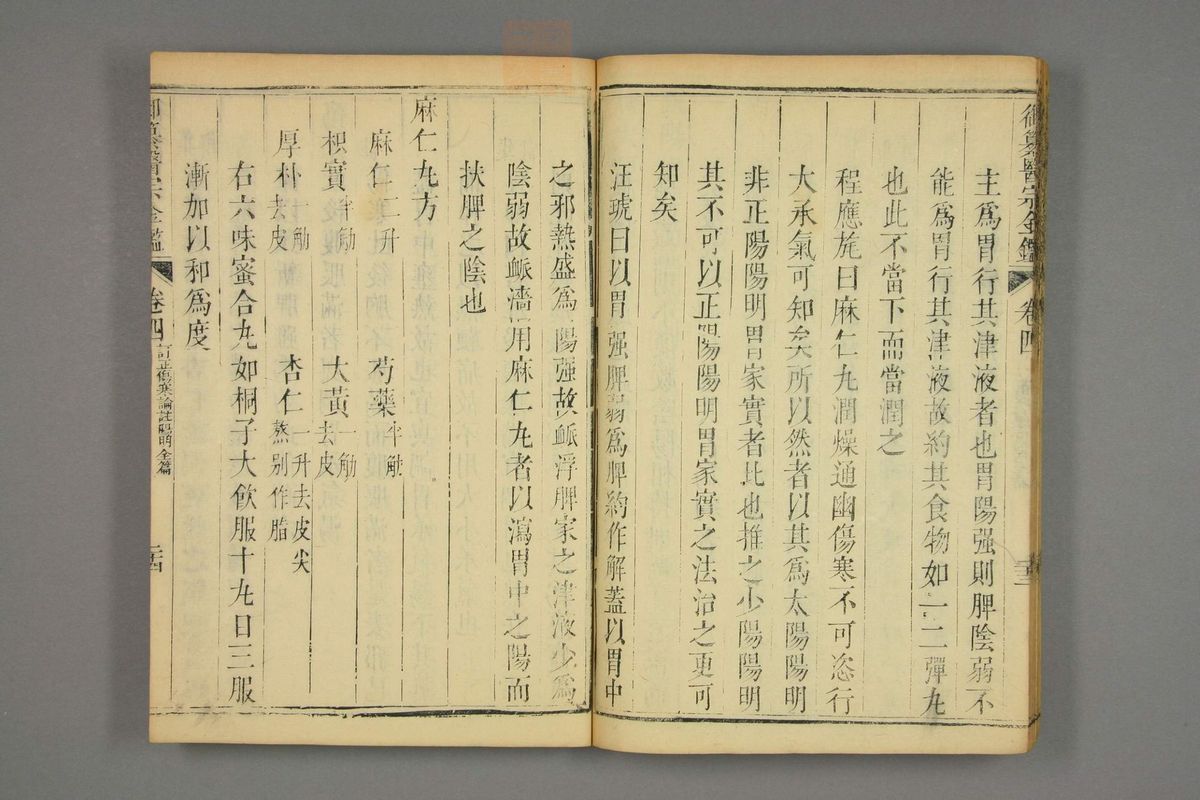 御纂醫宗金鑑 卷四 二十三
主爲胃行其津液者也胃陽强則脾陰弱不
能爲胃行其津液故約其食物如一二彈丸
也此不當下而當潤之
程應旄曰麻仁丸潤燥通幽傷寒不可恣行
大承氣可知矣所以然者以其爲太陽陽明
非正陽陽明胃家實者比也推之少陽陽明
其不可以正陽陽明胃家實之法治之更可
知矣
汪琥曰以胃强脾弱爲脾約作解蓋以胃中
之邪熱盛爲陽强故䘑浮脾家之津液少爲
陰弱故䘑濇用麻仁丸者以瀉胃中之陽而
扶脾之陰也
麻仁丸方
麻仁二升 芍藥半觔
枳實半觔 大黃一觔去皮
厚朴一觔去皮 杏仁一升去皮尖熬别作脂
右六味蜜合丸如桐子大飲服十丸日三服
漸加以和爲度
御纂醫宗金鑑 卷四 訂正傷寒論註陽明全篇 二十四